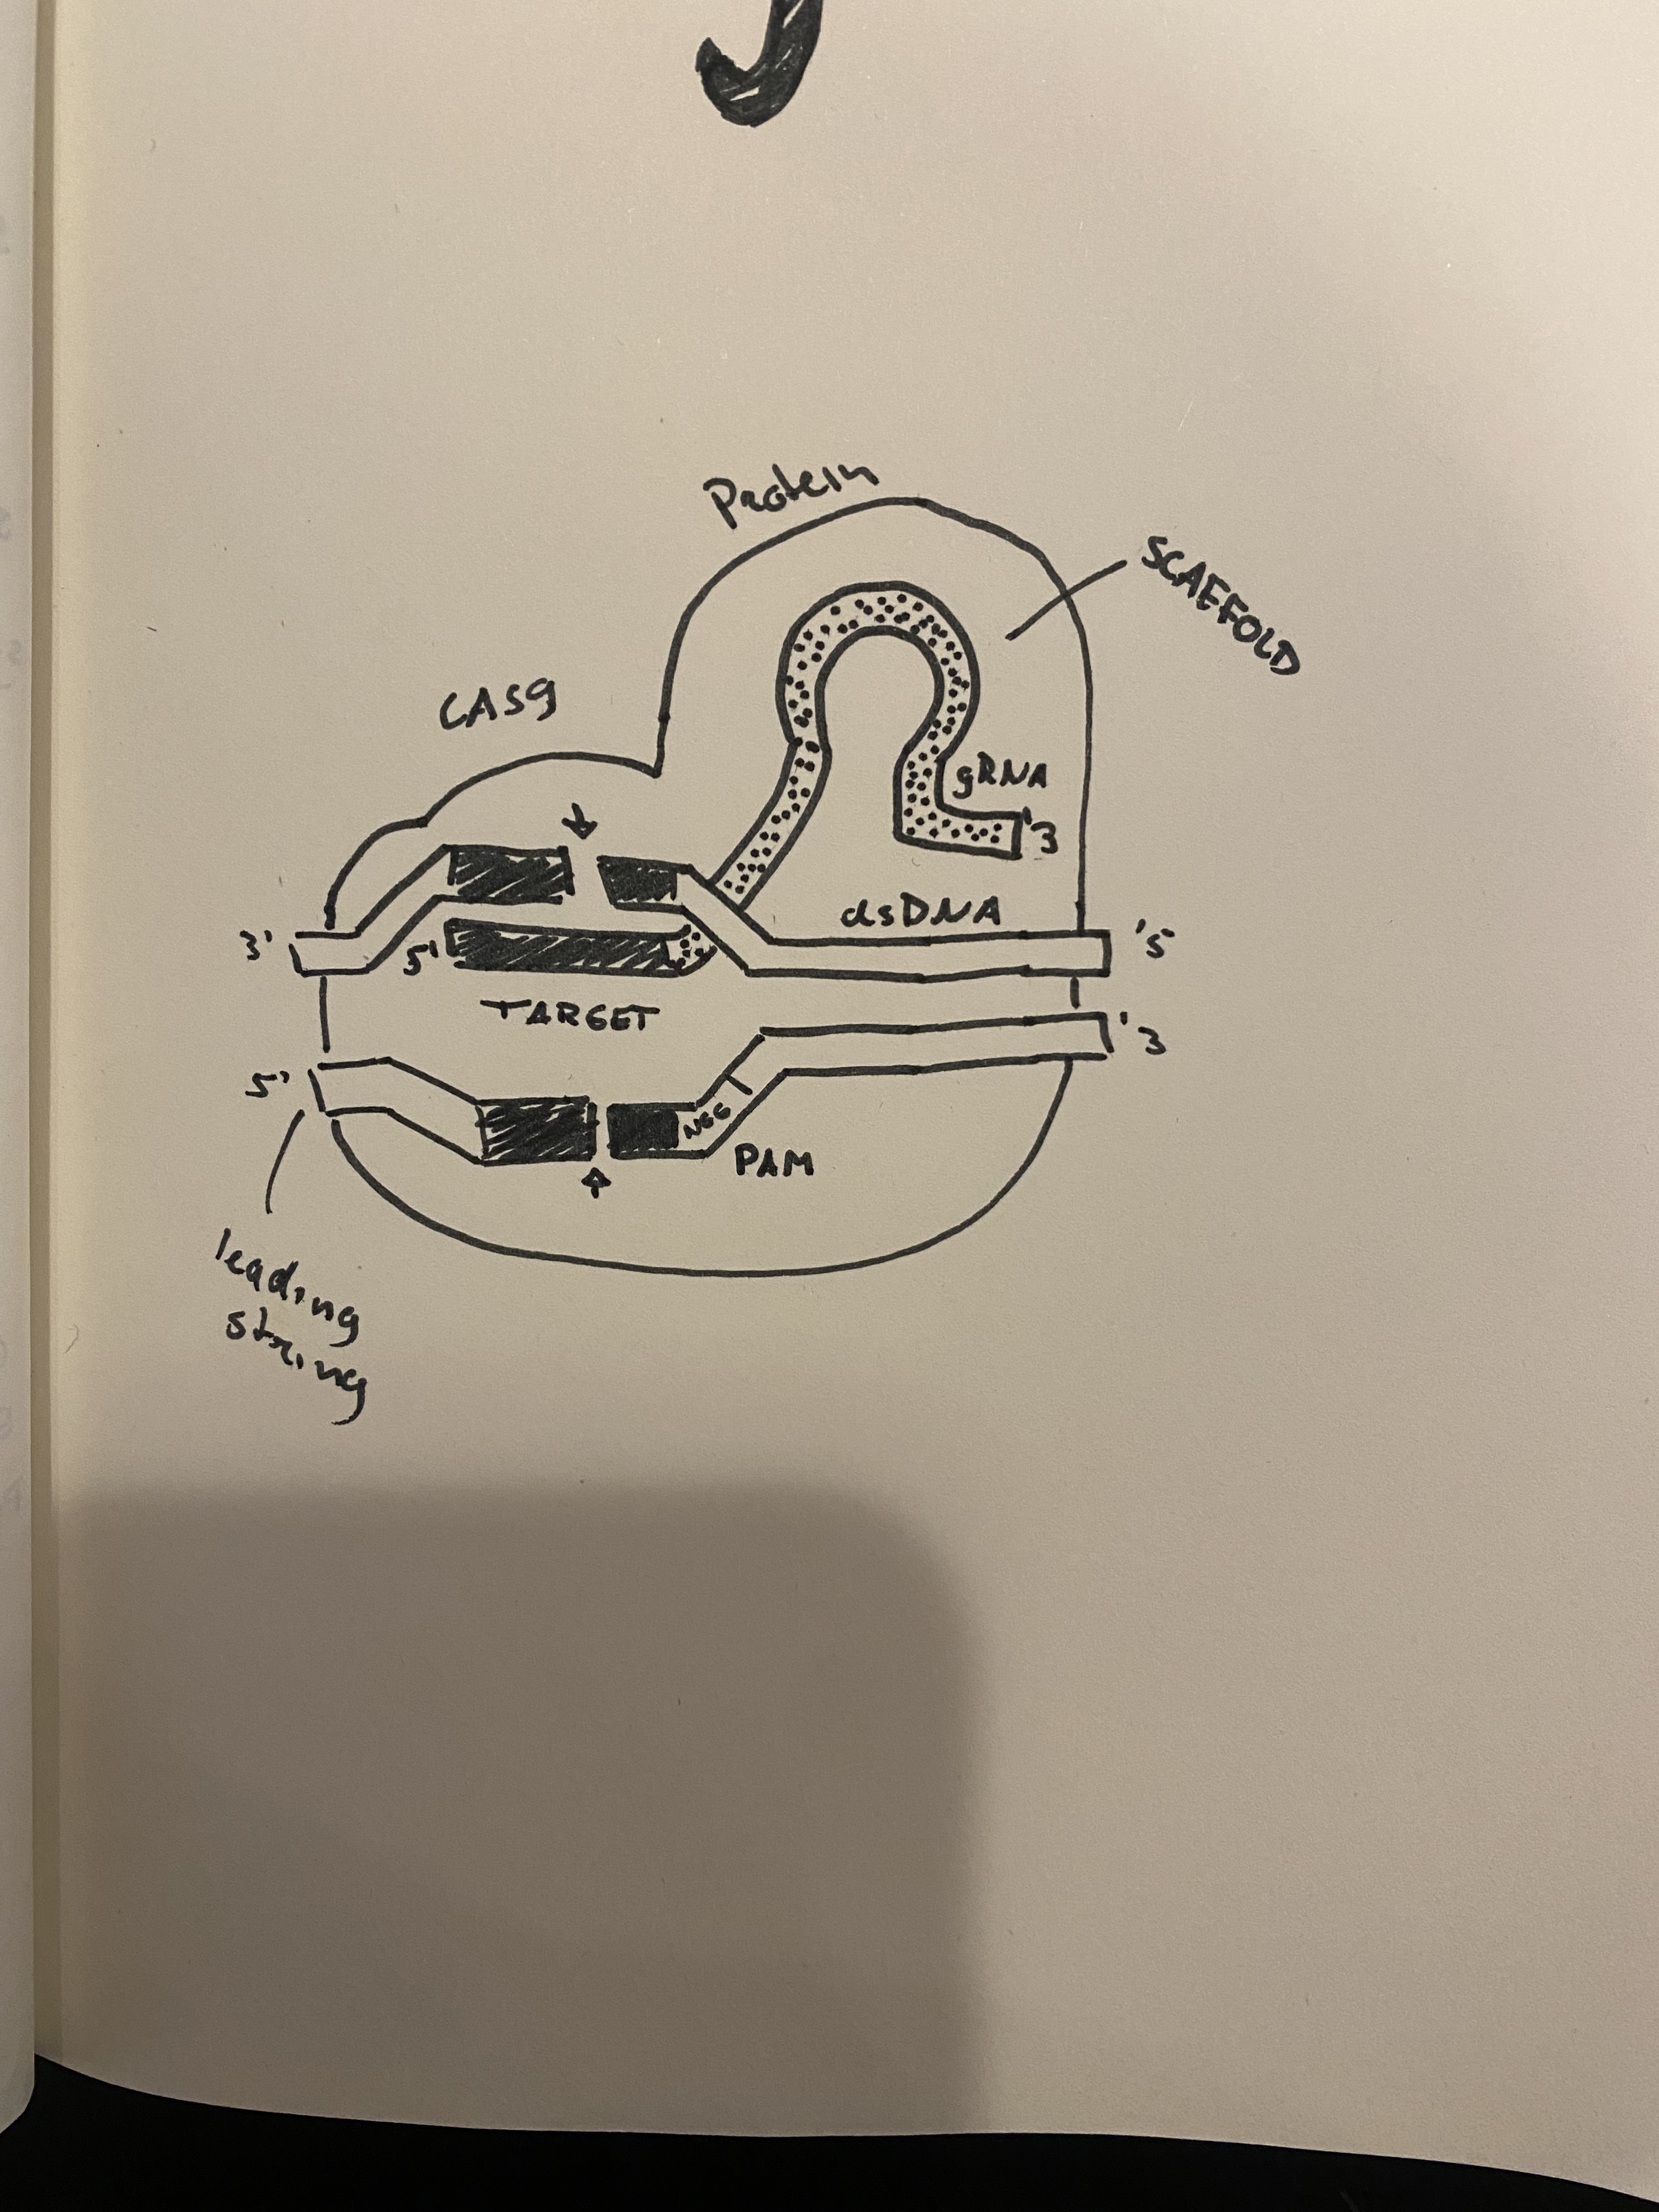 Protein
SCAFFOLD
CAS9
gRNA
'3
dsDNA
3'
5'
'5
TARGET
'3
5'
NGG
PAM
leading
string